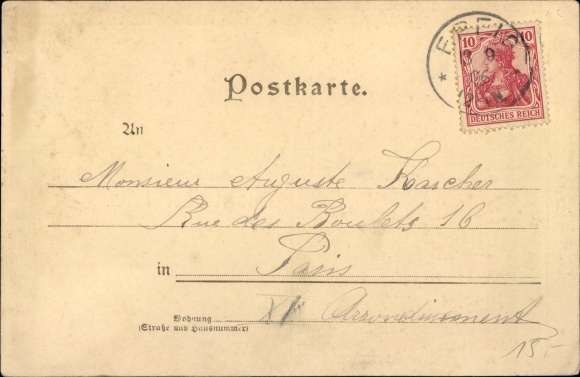 10 10
DEUTSCHES REICH
Postkarte.
An
Monsieur Auguste Karcher
Rue des Boulets 16
in Paris
XI Arrondissement
Wohnung
(Straße und Hausnummer)
15.-